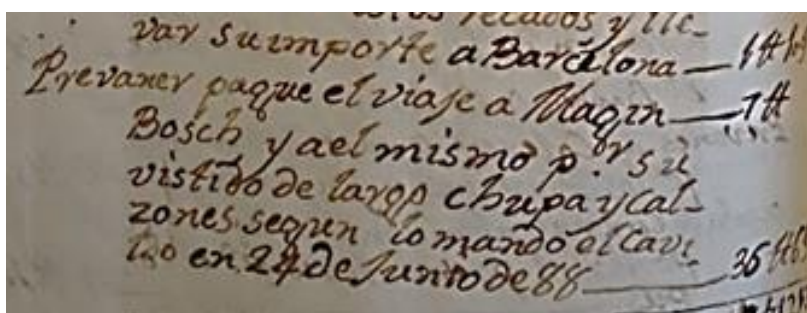 recados y lle-
var su importe a Barcelona — 1 ₶
Prevaner paque el viaje a Magin — 7 ₶
Bosch y a el mismo p.r su
vistido de larop chupa y cal-
zones segun lo mando el Cavi
en 24 de Junio de 88 — 36 ₶